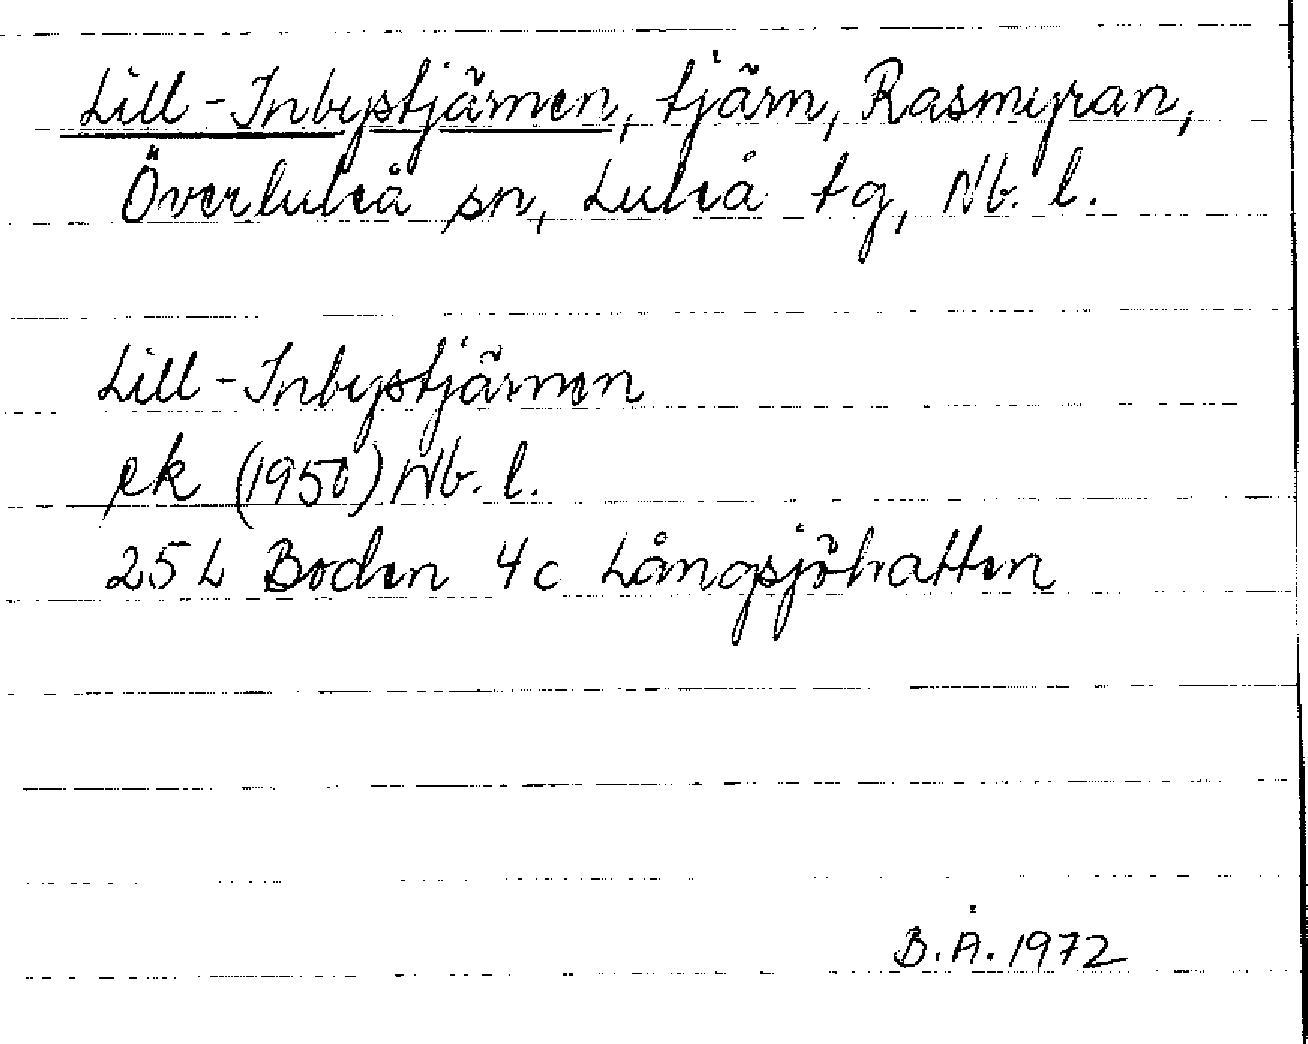 Lill-Inbystjärnen, tjärn, Rasmyran,
Överluleå sn, Luleå tg, Nb. l.
Lill-Inbystjärnen
ek (1950) Nb. l.
25 L Boden 4c Långsjöhatten
B.Å. 1972